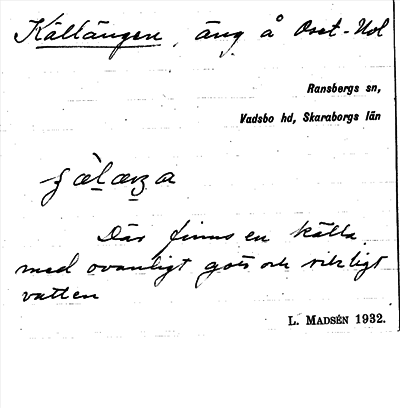 Källängen, äng å Oset-Hol
Ransbergs sn,
Vadsbo hd, Skaraborgs län
Där finns en källa
med ovanligt gott och rikligt
vatten
L. MADSÉN 1932.